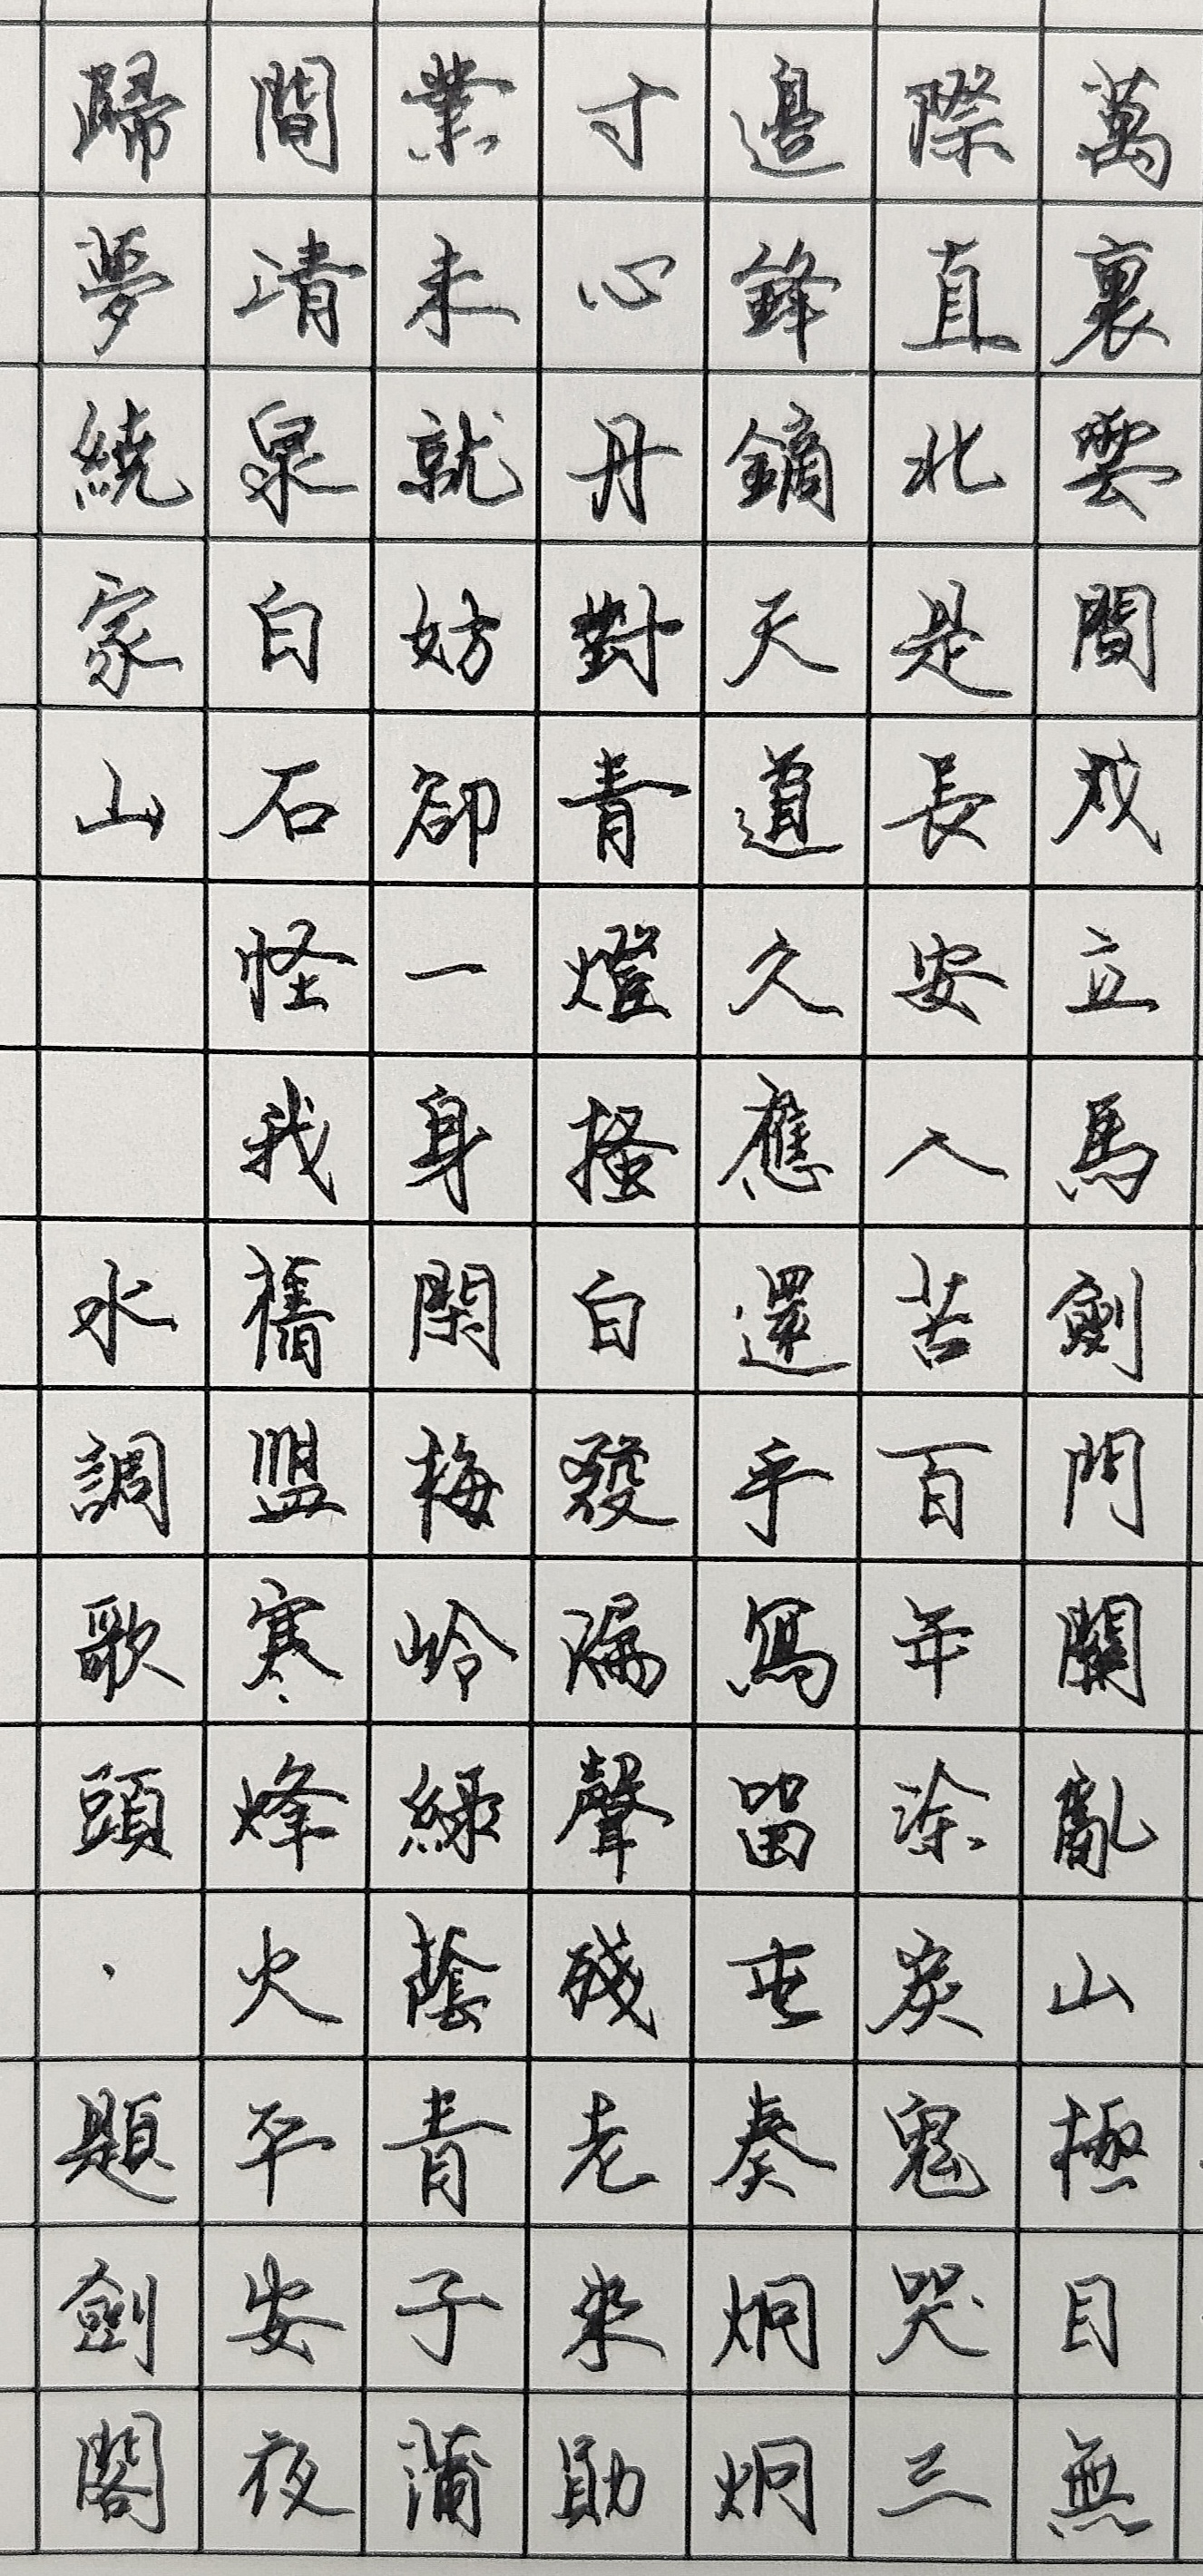 萬裏雲間戍立馬劍門關亂山極目無
際直北是長安人苦百年涂炭鬼哭三
邊鋒鏑天道久應還手寫留屯奏炯炯
寸心丹對青燈搔白發漏聲殘老來勛
業未就妨卻一身閑梅岭綠蔭青子蒲
間清泉白石怪我舊盟寒烽火平安夜
歸夢繞家山 水調歌頭·題劍閣